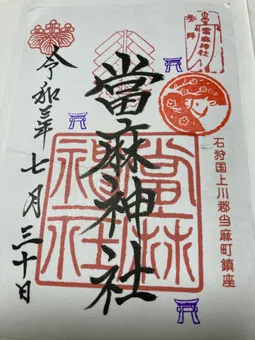 參拝
當麻神社
石狩国上川郡当麻町鎮座
當麻神社
當麻神社
令和三年七月三十日